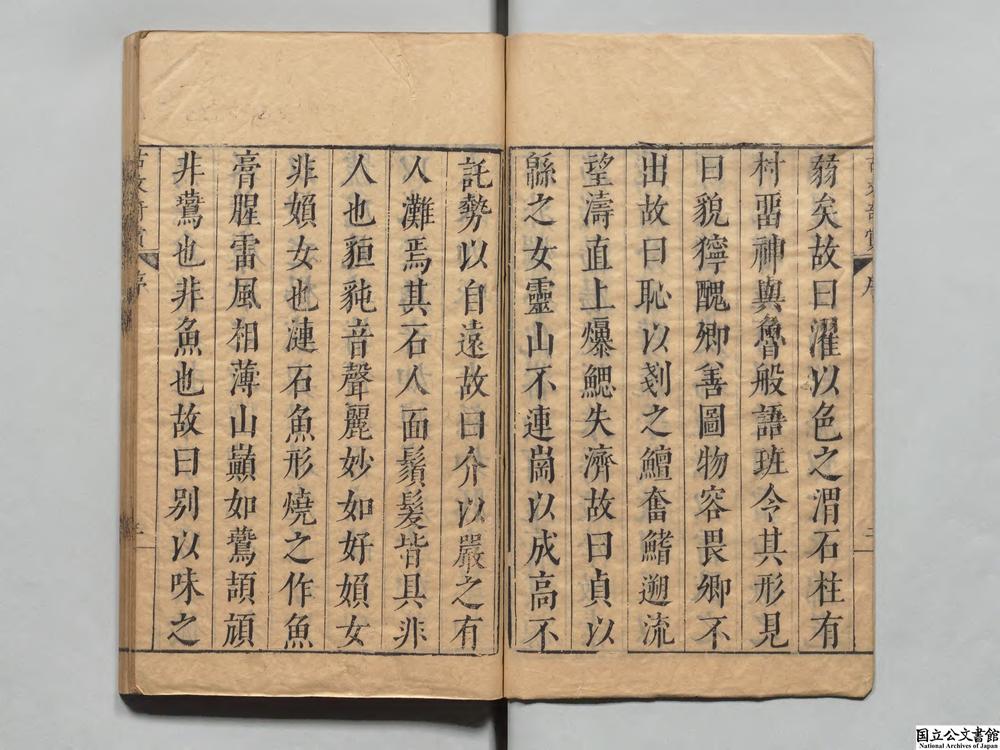 矣故曰濯以色之渭石柱有
村畱神與魯般語班令其形見
曰貌獰醜卿善圖物容畏卿不
出故曰恥以剗之鱣奮鰭遡流
望濤直上爆鰓失濟故曰貞以
緜之女靈山不連崗以成高不
託勢以自遠故曰介以嚴之有
人灘焉其石人面鬚髮皆具非
人也豭豘音聲麗妙如好媍女
非媍女也漣石魚形燒之作魚
膏腥雷風相薄山巔如鷟頡頏
非鷟也非魚也故曰别以味之
古文奇賞
序
二
古文奇賞
序
三
国立公文書館
National Archives of Japan